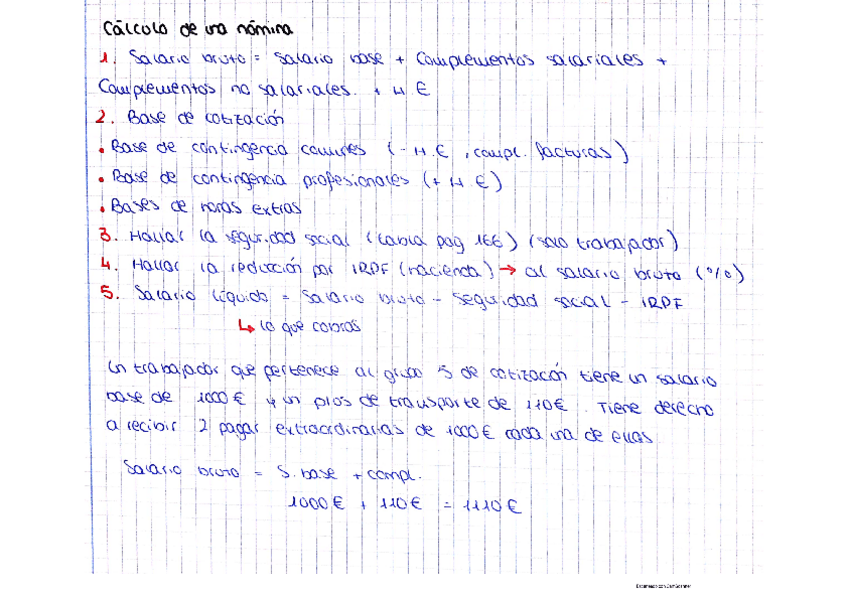 Cálculo de una nómina
1. Salario bruto = Salario base + Complementos salariales +
Complementos no salariales. + H E
2. Base de cotización
• Base de contingencia comunes (- H.E , compl. facturas)
• Base de contingencia profesionales (+ H.E)
• Bases de horas extras
3. Hallar la seguridad social (tabla pag 166) (solo trabajador)
4. Hallar la reducción por IRPF (hacienda) → al salario bruto (%)
5. Salario líquido = Salario bruto - Seguridad social - IRPF
↳ lo que cobras
Un trabajador que pertenece al grupo 5 de cotización tiene un salario
base de 1000 € y un plus de transporte de 110 €. Tiene derecho
a recibir 2 pagar extraordinarias de 1000 € cada una de ellas
Salario bruto = S. base + compl.
1000 € + 110 € = 1110 €
Escaneado con CamScanner